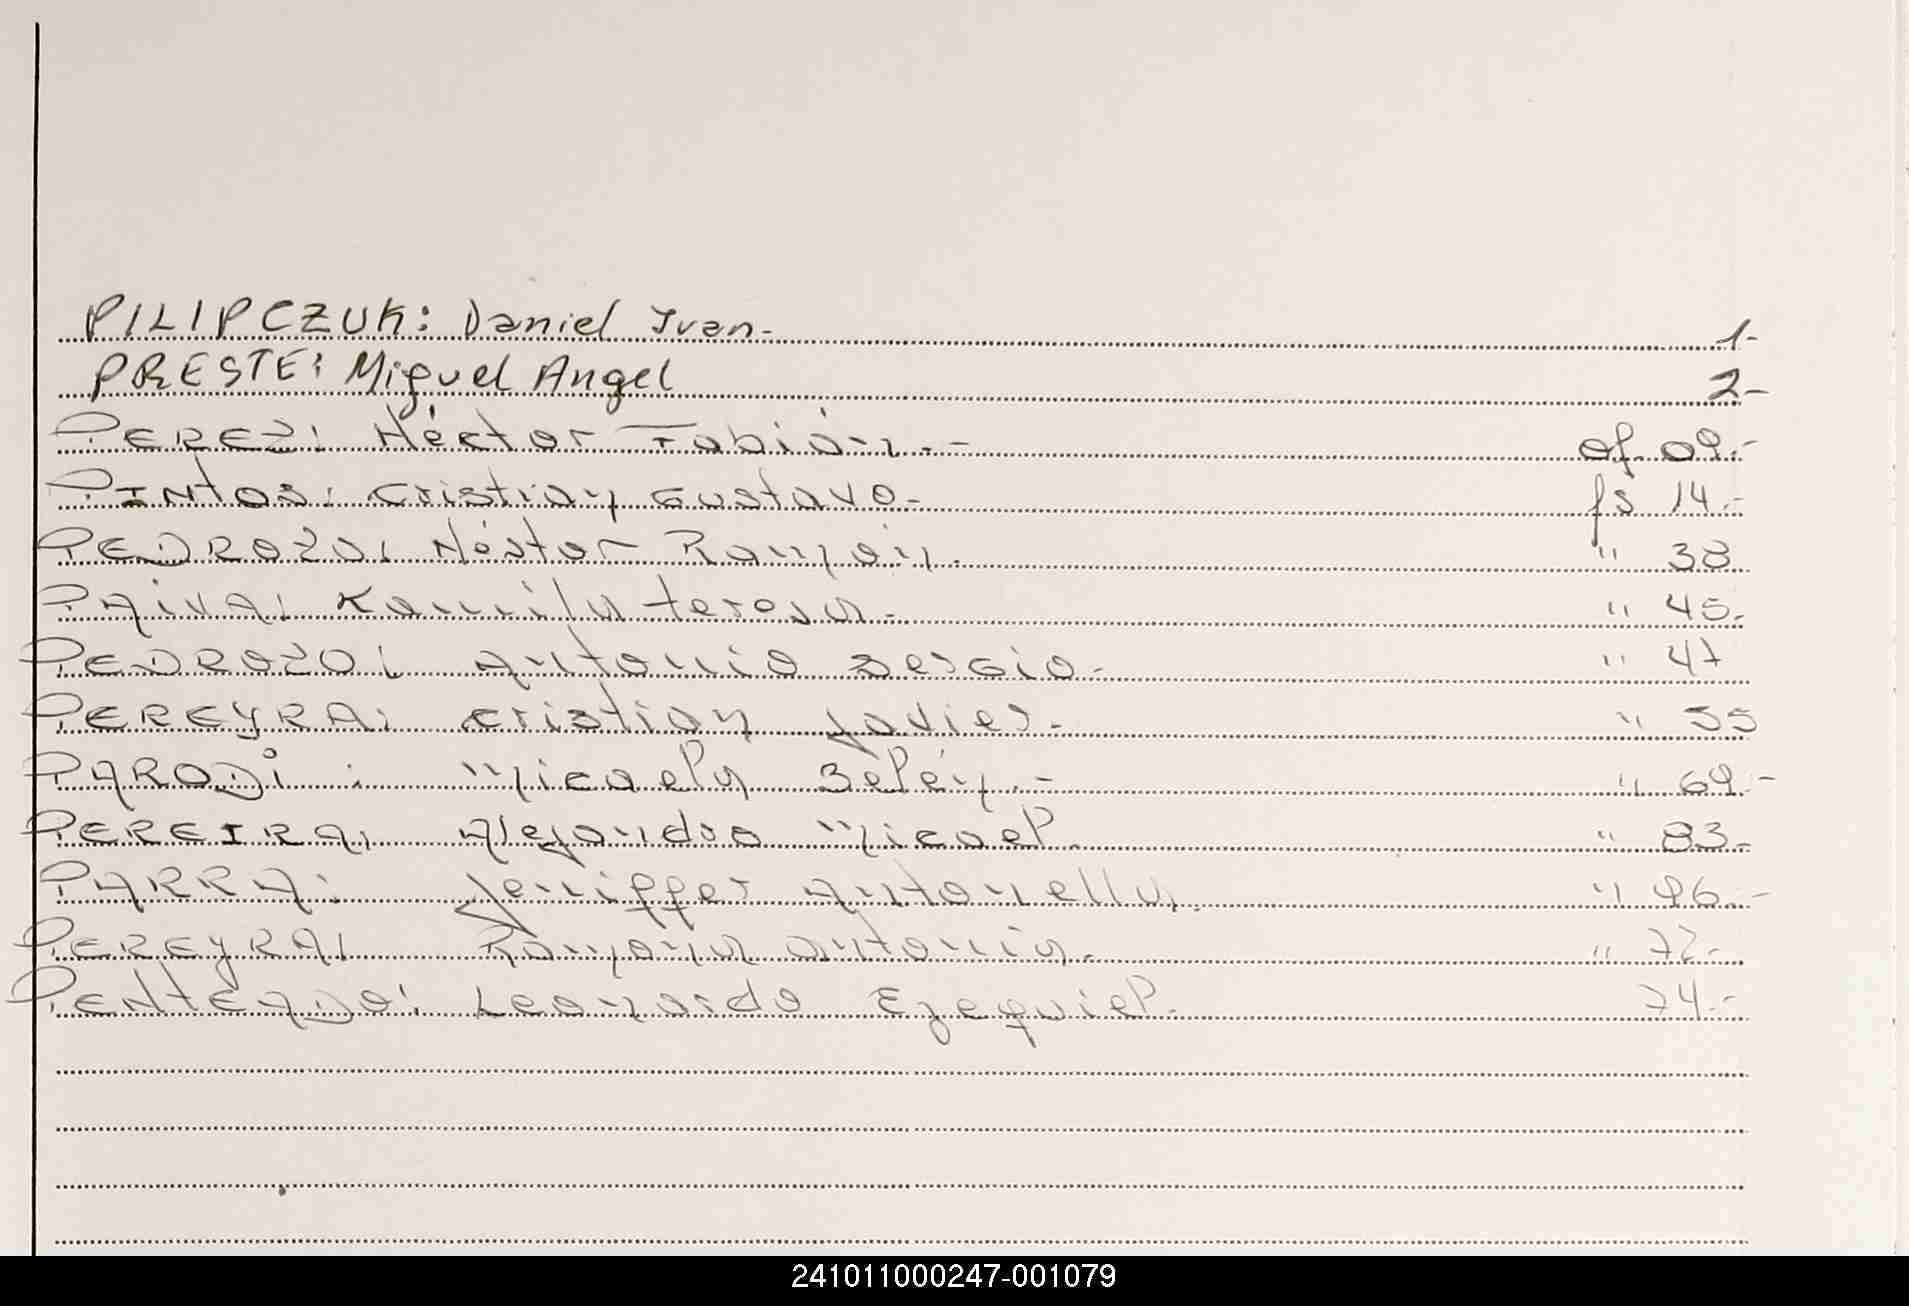 PILIPCZUK: Daniel Ivan.- 1-
PRESTE: Miguel Angel 2-
PEREZ: Héctor Fabián.- of. 09.-
PINTOS: Cristian Gustavo- fs 14.-
PEDROZO: Néstor Ramón. " 38
PAIVA: Kamila teresa.- " 45.
PEDROZO: Antonio Sergio- " 47
PEREYRA: Cristian Javier.- " 55
PARODI: Micaela Belén.- " 69.-
PEREIRA: Alejandro Micael. " 83.-
PARRA: Jeniffer Antonella. " 96.-
PEREYRA: Ramona antonia.- " 72.-
PENTEADO: Leonardo Ezequiel. 74.-
241011000247-001079